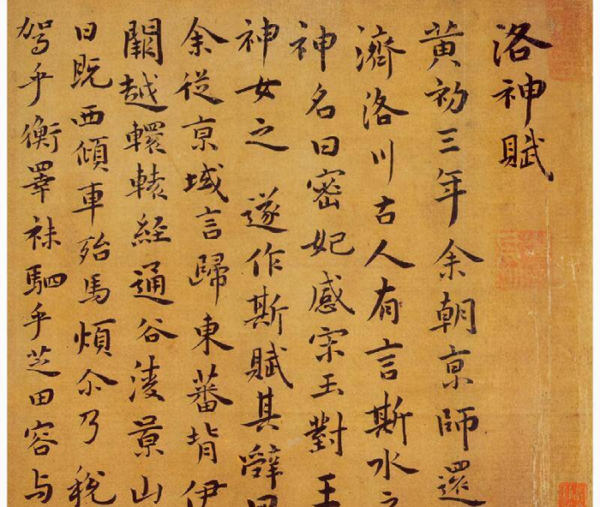 洛神賦
黃初三年余朝京師還
濟洛川古人有言斯水之
神名曰宓妃感宋玉對王
神女之 遂作斯賦其辭曰
余從京域言歸東蕃背伊
闕越轘轅經通谷陵景山
日既西傾車殆馬煩尒乃稅
駕乎蘅睪袜駟乎芝田容与